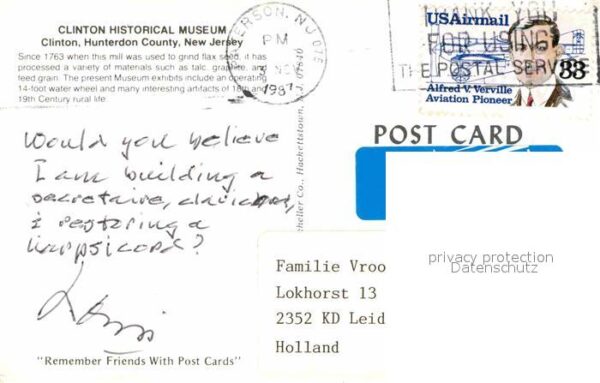 CLINTON HISTORICAL MUSEUM
Clinton, Hunterdon County, New Jersey
Since 1763 when this mill was used to grind flax seed, it has
processed a variety of materials such as talc, graphite, and
feed grain. The present Museum exhibits include an operating
14-foot water wheel and many interesting artifacts of 18th and
19th Century rural life.
ERSON, NJ 076
PM
NOV
1987
THANK YOU
FOR USING
THE POSTAL SERV
USAirmail
33
Alfred V. Verville
Aviation Pioneer
POST CARD
Would you believe
I am building a
secretaire,
& restoring a
harpsicord?
"Remember Friends With Post Cards"
heller Co., Hackettstown, N.J. 07840
Familie Vroo
Lokhorst 13
2352 KD Leid
Holland
privacy protection
Datenschutz